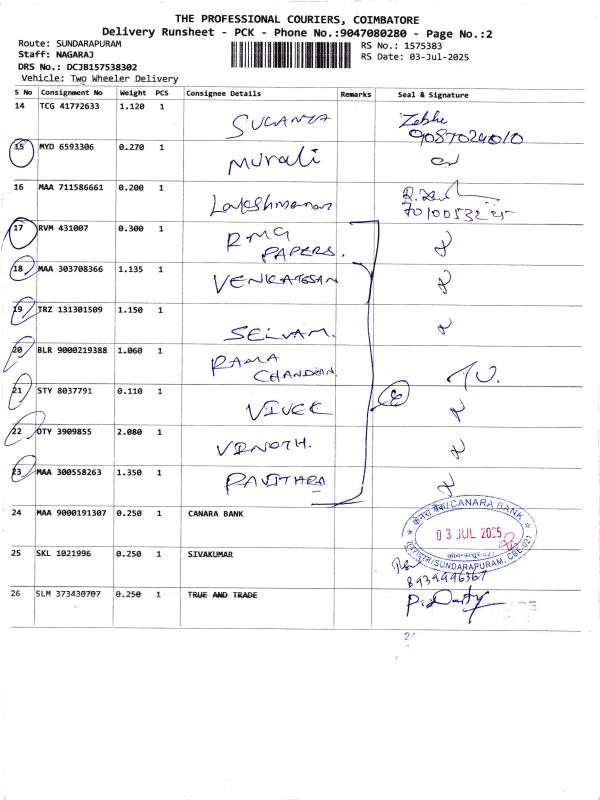 THE PROFESSIONAL COURIERS, COIMBATORE
Delivery Runsheet - PCK - Phone No.:9047080280 - Page No.:2
Route: SUNDARAPURAM
RS No.: 1575383
Staff: NAGARAJ
RS Date: 03-Jul-2025
DRS No.: DCJB157538302
Vehicle: Two Wheeler Delivery
S No Consignment No Weight PCS Consignee Details Remarks Seal & Signature
14 TCG 41772633 1.120 1 SUGANYA
15 MYD 6593306 0.270 1 Murali
16 MAA 711586661 0.200 1 Lakshmanan
17 RVM 431007 0.300 1 RMG
PAPERS.
18 MAA 303708366 1.135 1 VENKATESAN
19 TRZ 131301509 1.150 1 SELVAM.
20 BLR 9000219388 1.060 1 RAMA
CHANDRAN.
21 STY 8037791 0.110 1 VIVEK
22 OTY 3909855 2.080 1 VINOTH.
23 MAA 300558263 1.350 1 PAVITHRA
24 MAA 9000191307 0.250 1 CANARA BANK
केनरा बैंक/CANARA BANK
03 JUL 2025
SUNDARAPURAM, CBE-021
25 SKL 1021996 0.250 1 SIVAKUMAR
8939996367
26 SLM 373430707 0.250 1 TRUE AND TRADE